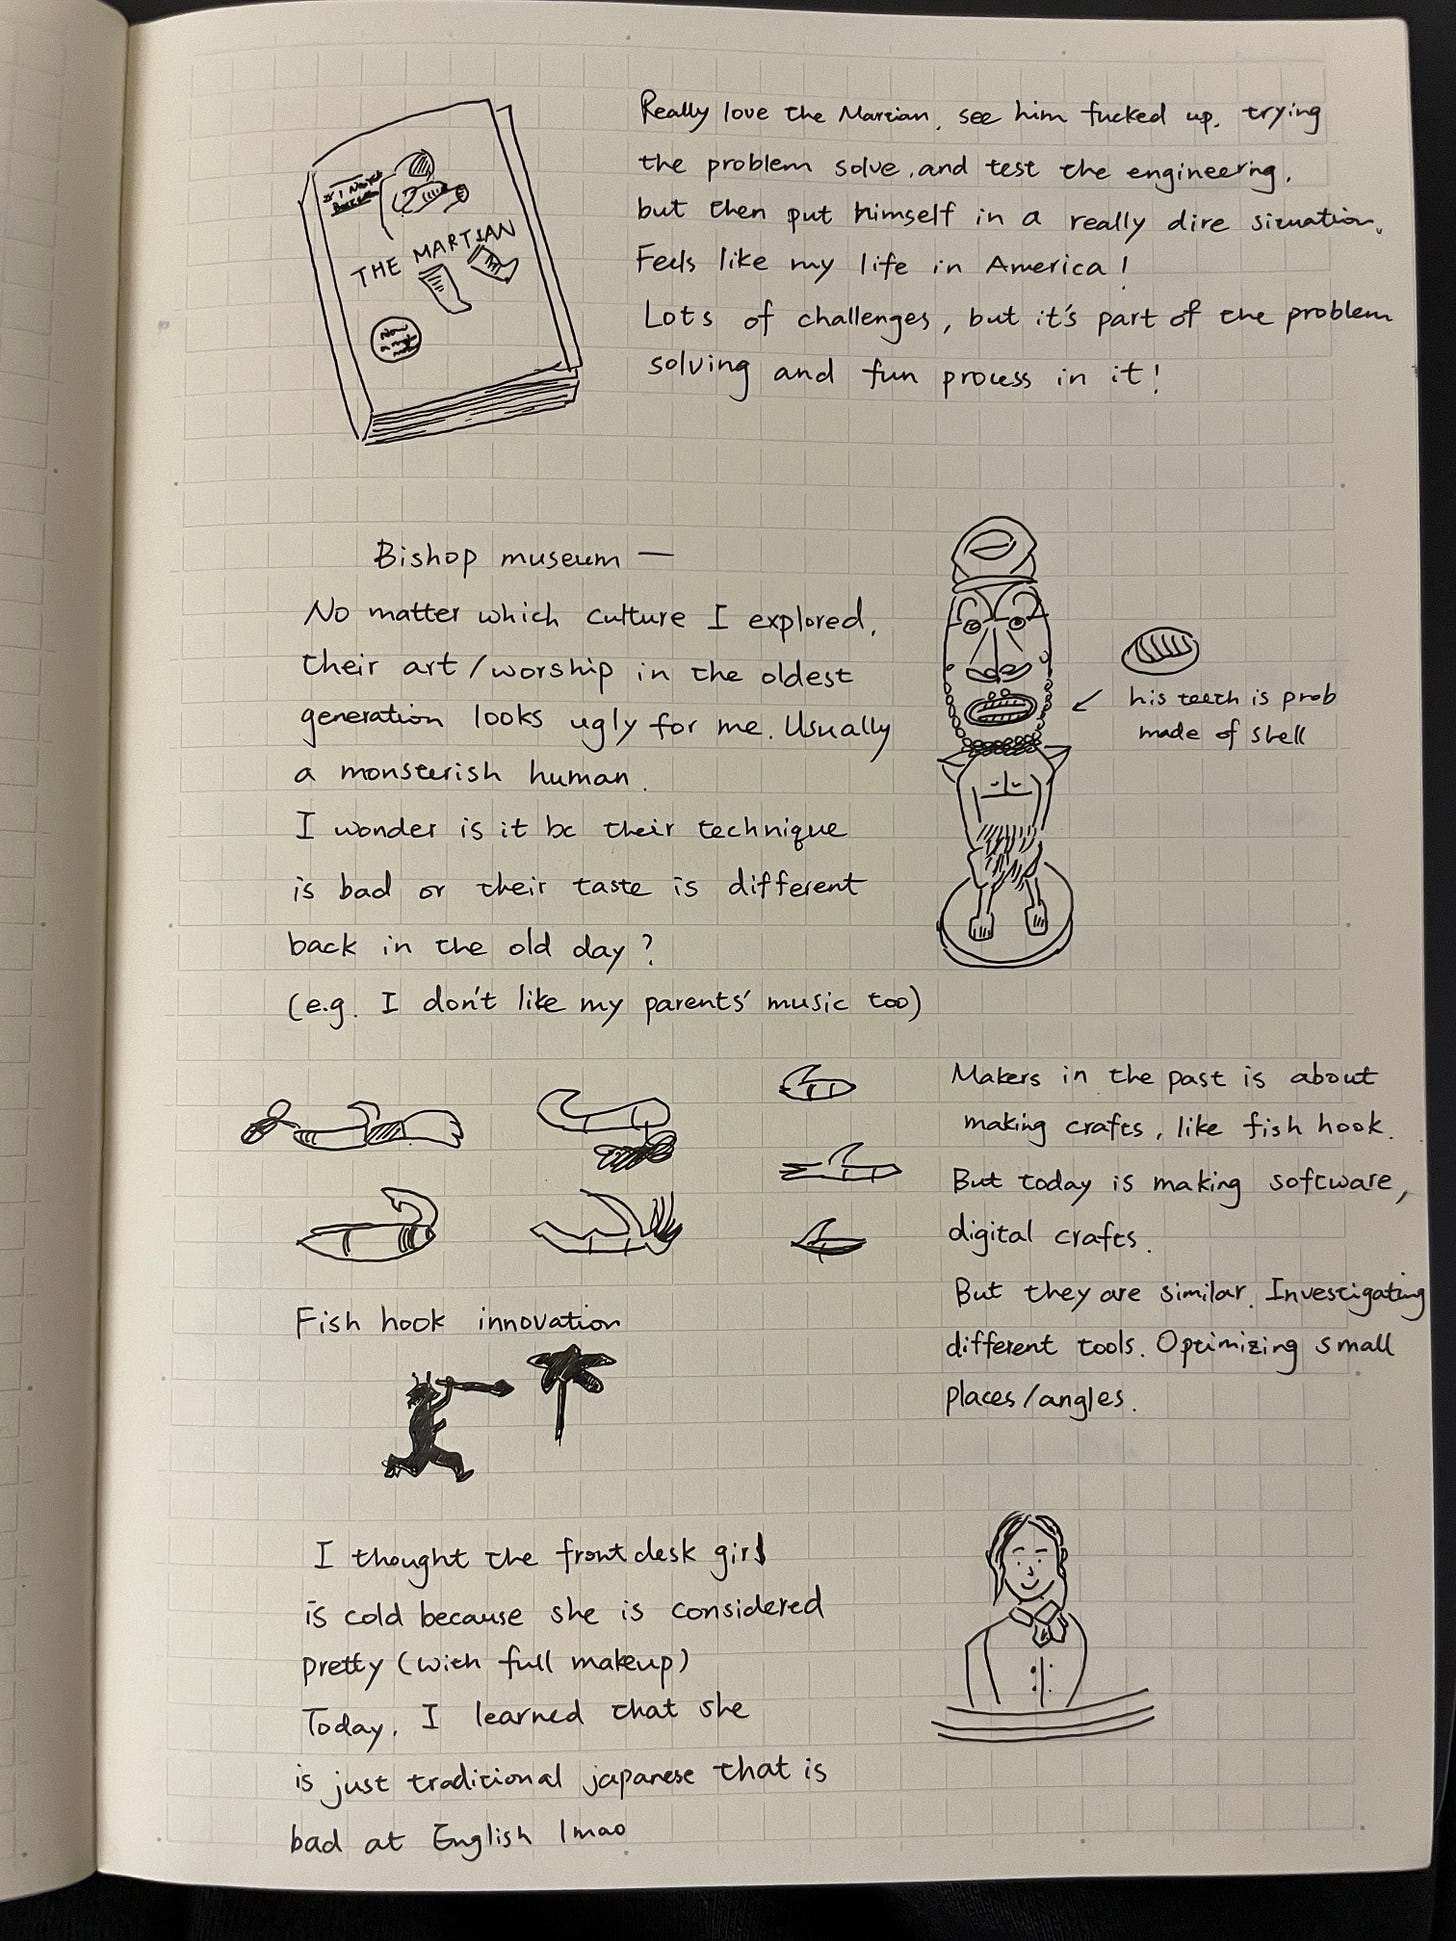 THE MARTIAN
Really love the Martian, see him fucked up, trying
the problem solve, and test the engineering,
but then put himself in a really dire situation.
Feels like my life in America!
Lots of challenges, but it's part of the problem
solving and fun process in it!
Bishop museum —
No matter which culture I explored,
their art/worship in the oldest
generation looks ugly for me. Usually
a monsterish human.
I wonder is it bc their technique
is bad or their taste is different
back in the old day?
(e.g. I don't like my parents' music too)
his teeth is prob
made of shell
Makers in the past is about
making crafts, like fish hook.
But today is making software,
digital crafts.
But they are similar. Investigating
different tools. Optimizing small
places/angles.
Fish hook innovation
I thought the front desk girl
is cold because she is considered
pretty (with full makeup)
Today, I learned that she
is just traditional japanese that is
bad at English lmao